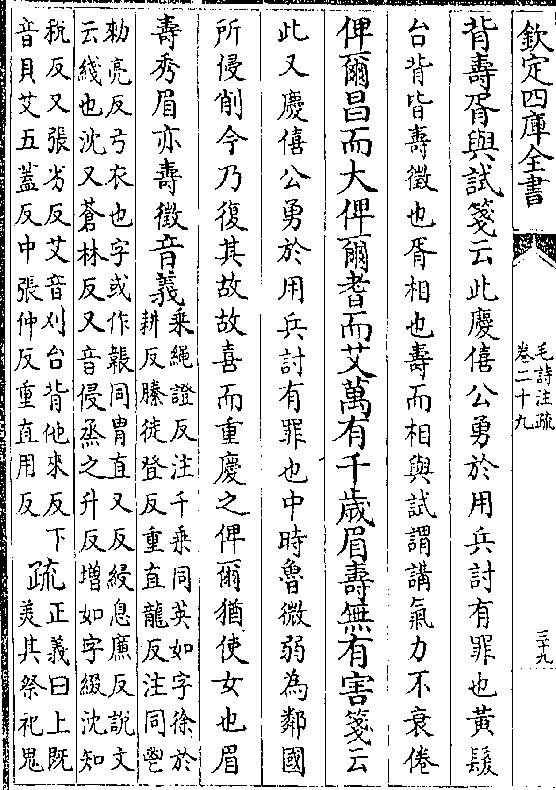 欽定四庫全書
毛詩注疏
卷二十九
三十九
背壽胥與試箋云此慶僖公勇於用兵討有罪也黃髮
台背皆壽徵也胥相也壽而相與試謂講氣力不衰倦
俾爾昌而大俾爾耆而艾萬有千歲眉壽無有害箋云
此又慶僖公勇於用兵討有罪也中時魯微弱為鄰國
所侵削今乃復其故故喜而重慶之俾爾猶使女也眉
壽秀眉亦壽徵音義
乘繩證反注千乘同英如字徐於
耕反縢徒登反重直龍反注同鬯
勑亮反弓衣也字或作韔同胄直又反綅息廉反說文
云綫也沈又蒼林反又音侵烝之升反增如字綴沈知
稅反又張劣反艾音刈台背他來反下
音貝艾五蓋反中張仲反重直用反
疏
正義曰上既
美其祭祀鬼